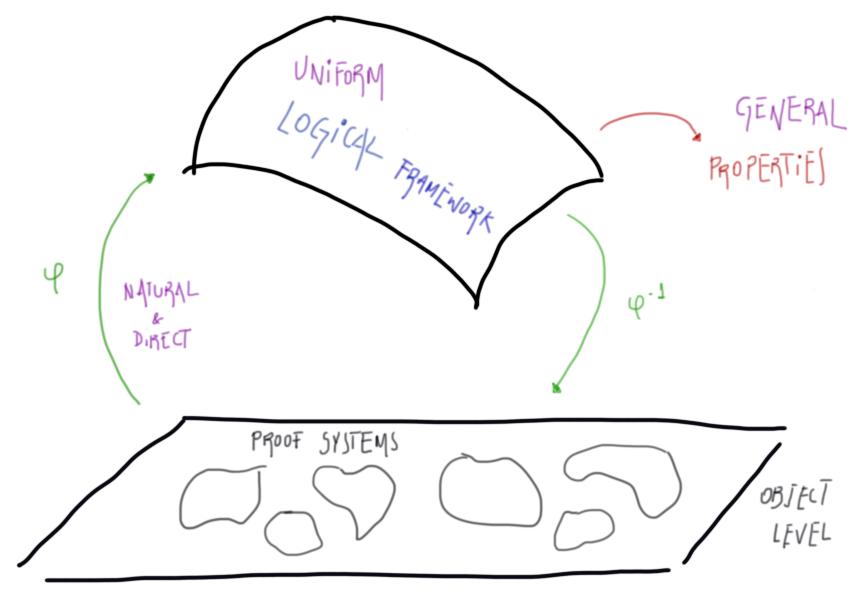 UNiFORM
LOGiCAL
FRAMEWORK
GENERAL
PROPERTiES
φ
NATURAL
&
DiRECT
φ-1
PROOF SYSTEMS
OBJECT
LEVEL